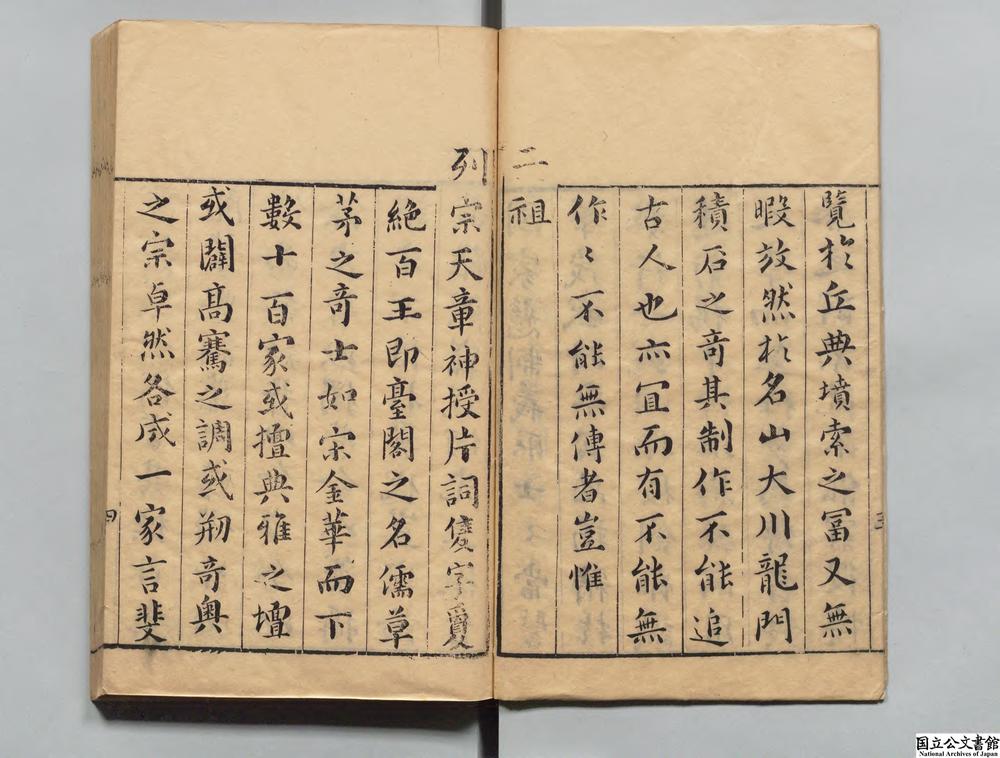 覽於丘典墳索之冨又無
暇放然於名山大川龍門
積石之竒其制作不能追
古人也亦冝而有不能無
作々不能無傳者豈惟
二
祖
列
宗天章神授片詞隻字夐
絶百王即臺閣之名儒草
茅之竒士如宋金華而下
數十百家或擅典雅之壇
或闢髙騫之調或刱竒奥
之宗卓然各成一家言斐
三
四
国立公文書館
National Archives of Japan